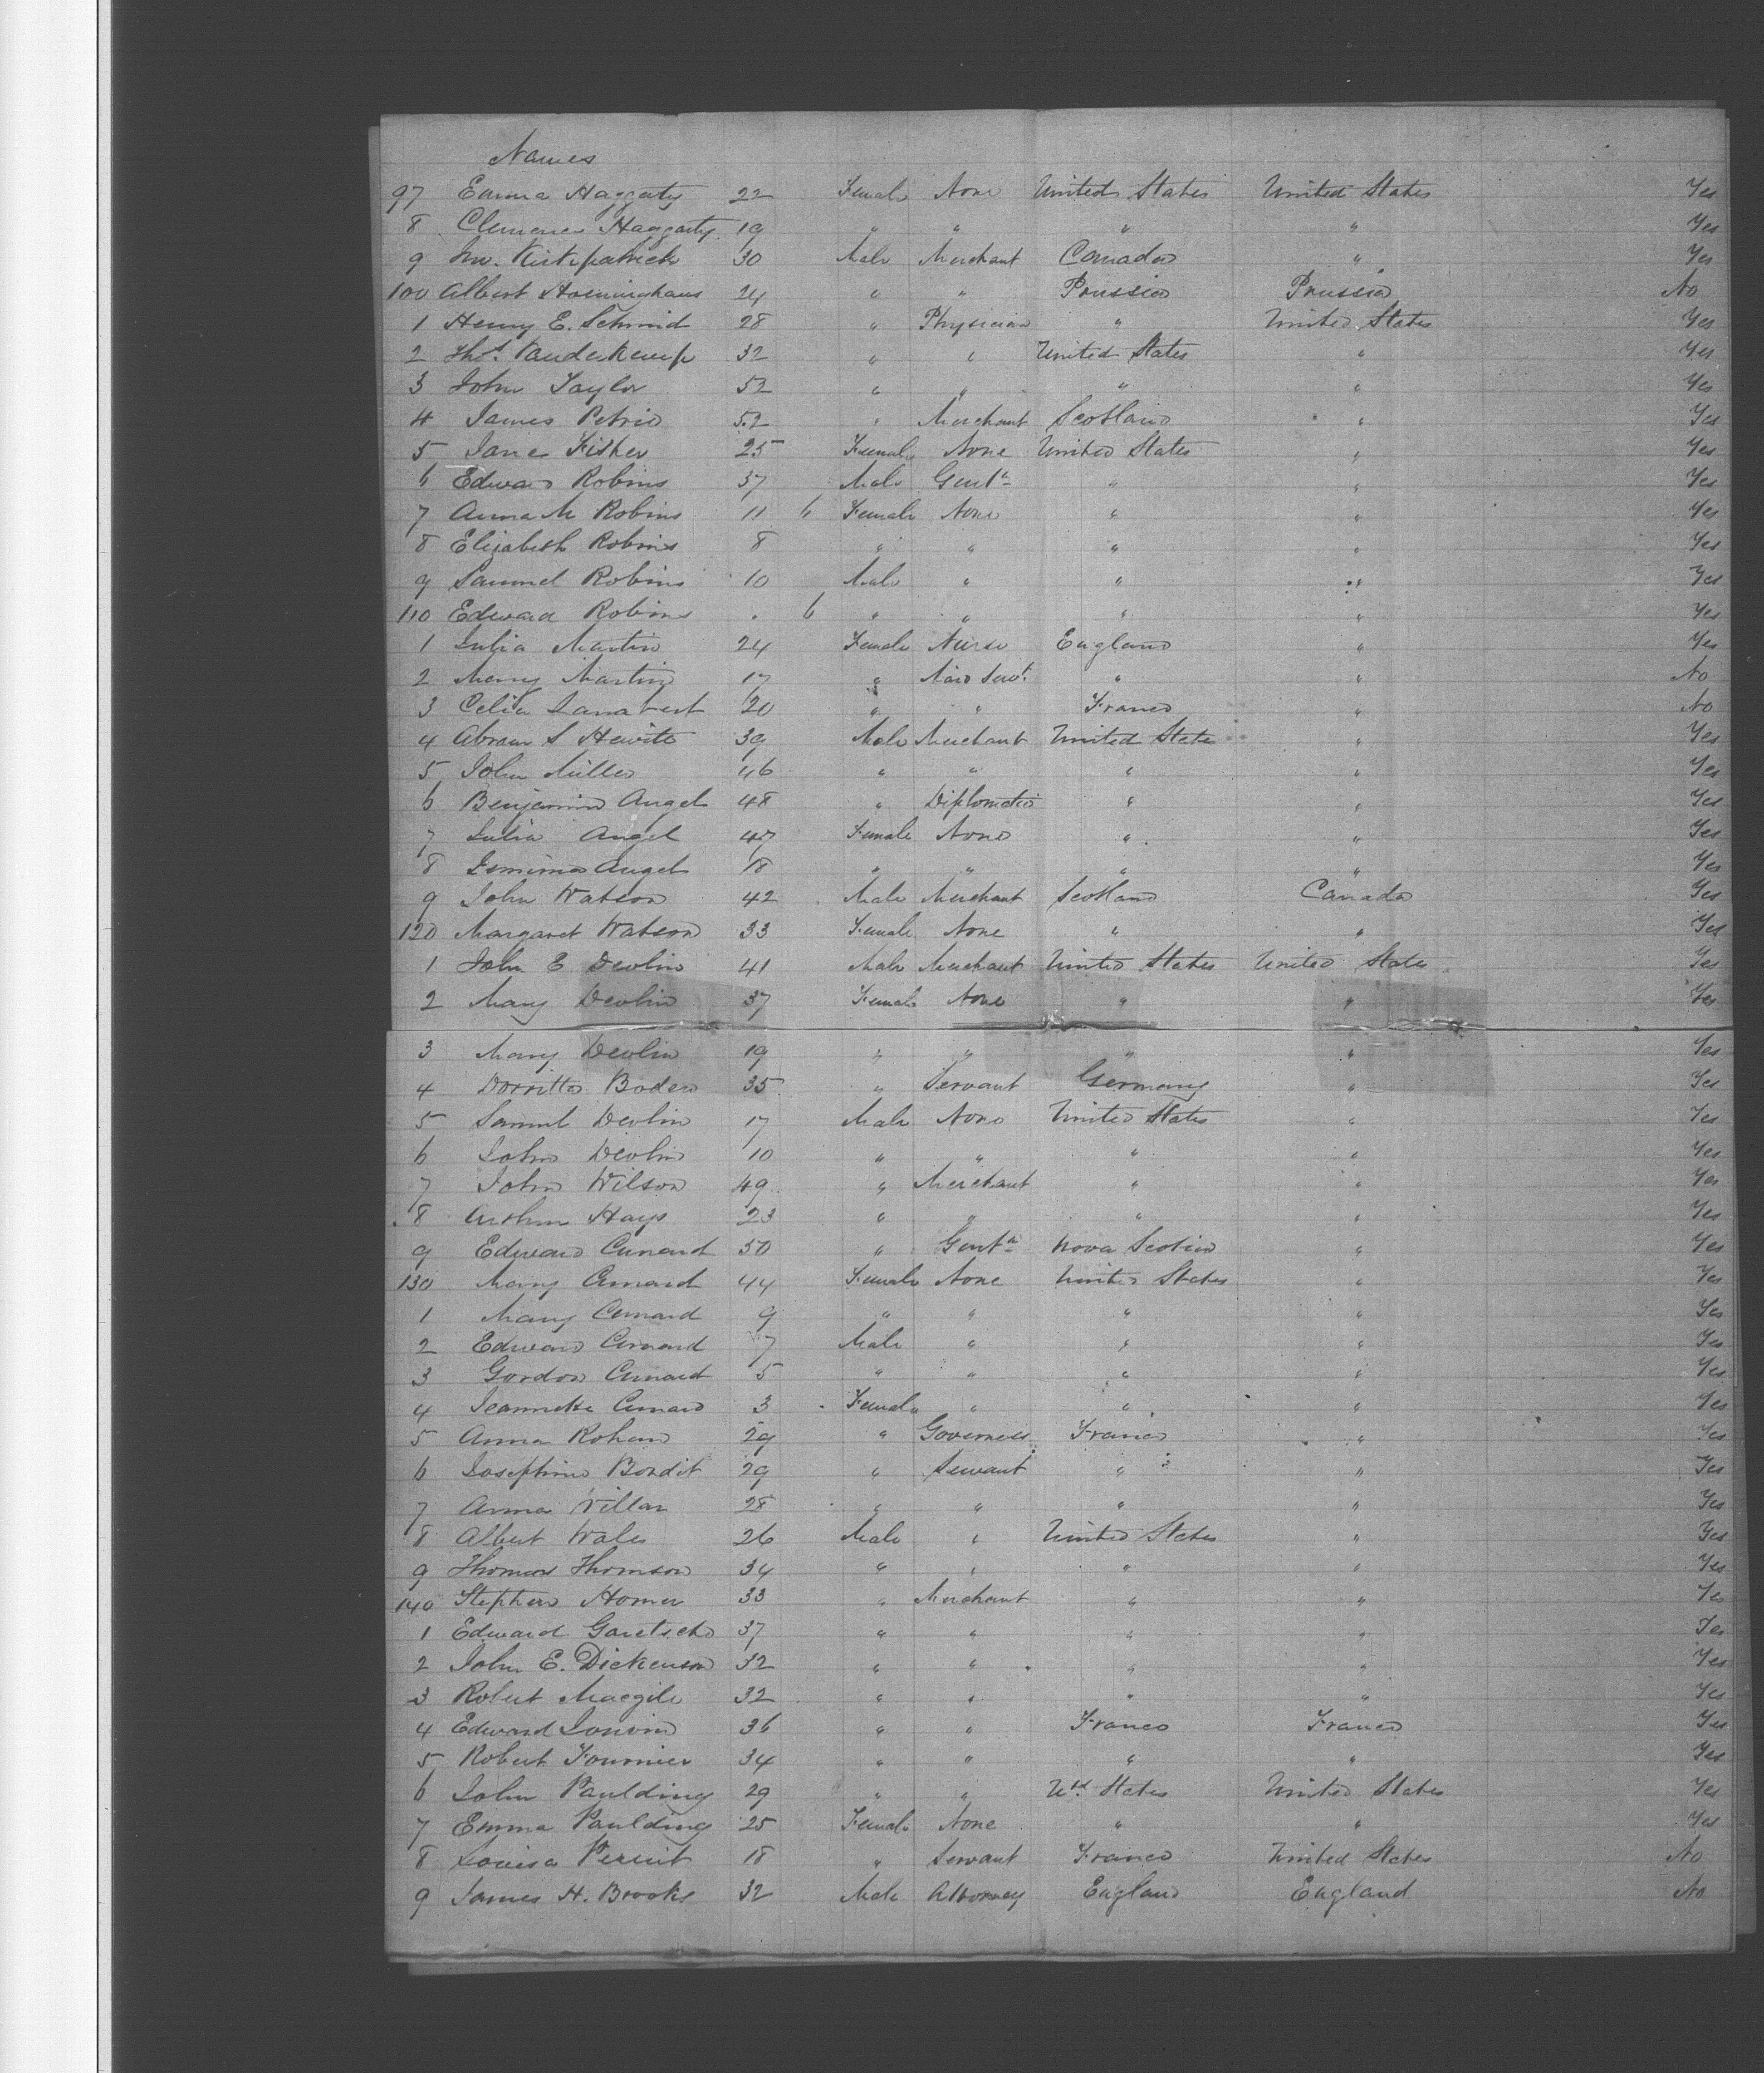 Names
97 Emma Haggaty 22 Female None United States United States Yes
8 Clemence Haggarty 19 " " " " Yes
9 Jno. Kirkpatrick 30 Male Merchant Canada " Yes
100 Albert Hoeninghaus 24 " " Prussia Prussia No
1 Henry E. Schmid 28 " Physician " United States Yes
2 Thos. Vanderkemp 32 " " United States " Yes
3 John Taylor 52 " " " " Yes
4 James Petrie 52 " Merchant Scotland " Yes
5 Jane Fisher 25 Female None United States " Yes
6 Edward Robins 37 Male Gentn " " Yes
7 Anna M Robins 11 6 Female None " " Yes
8 Elizabeth Robins 8 " " " " Yes
9 Samuel Robins 10 Male " " " Yes
110 Edward Robins . 6 " " " " Yes
1 Julia Martin 24 Female Nurse England " Yes
2 Mary Martin 17 " Maid Servt. " " No
3 Celia 20 " " France " No
4 Abram S Hewitt 39 Male Merchant United States " Yes
5 John Miller 46 " " " " Yes
6 Benjamin Angel 48 " Diplomatic " " Yes
7 Julia Angel 47 Female None " " Yes
8 Angel 18 " " " " Yes
9 John Watson 42 Male Merchant Scotland Canada Yes
120 Margaret Watson 33 Female None " " Yes
1 John E Devlin 41 Male Merchant United States United States Yes
2 Mary Devlin 37 Female None " " Yes
3 Mary Devlin 19 " " " " Yes
4 Dorritta Boden 35 " Servant Germany " Yes
5 Samul Devlin 17 Male None United States " Yes
6 John Devlin 10 " " " " Yes
7 John Wilson 49 " Merchant " " Yes
8 Arthur Hays 23 " " " " Yes
9 Edward Cunard 50 " Gentn Nova Scotia " Yes
130 Mary Cunard 44 Female None United States " Yes
1 Mary Cunard 9 " " " " Yes
2 Edward Cunard 7 Male " " " Yes
3 Gordon Cunard 5 " " " " Yes
4 Jeannette Cunard 3 Female " " " Yes
5 Anna Rohan 29 " Governess France " Yes
6 Josephine Bondit 29 " Servant " " Yes
7 Anna Villar 28 " " " " Yes
8 Albert Wales 26 Male " United States " Yes
9 Thomas Thomson 34 " " " " Yes
140 Stephen Homer 33 " Merchant " " Yes
1 Edward Garetscho 37 " " " " Yes
2 John E. Dickenson 32 " " " " Yes
3 Robert Macgill 32 " " " " Yes
4 Edward 36 " " France France Yes
5 Robert Fournier 34 " " " " Yes
6 John Paulding 29 " " Utd. States United States Yes
7 Emma Paulding 25 Female None " " Yes
8 Louisa 18 " Servant France United States No
9 James H. Brooks 32 Male Attorney England England No